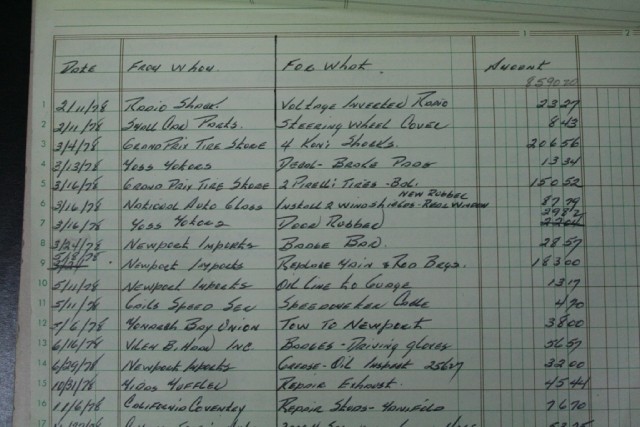 1 2
DATE FROM WHOM. FOR WHAT. AMOUNT
859020
1 2/11/78 RADIO SHACK VOLTAGE INVERTER RADIO 23 27
2 3/11/78 SMALL CAR PARTS. STEERING WHEEL COVER 8 43
3 3/4/78 GRAND PRIX TIRE STORE 4 KONI SHOCKS. 206 56
4 2/13/78 MOSS MOTORS - BRAKE PADS 13 34
5 3/16/78 GRAND PRIX TIRE STORE 2 PIRELLI TIRES - BAL. 150 52
NEW RUBBER
6 3/16/78 NATIONAL AUTO GLASS INSTALL 2 WINDSHIELDS - REAR WINDOW 87 79
7 3/16/78 MOSS MOTORS DOOR RUBBER
8 3/24/78 NEWPORT IMPORTS BADGE BAR. 28 57
9 NEWPORT IMPORTS REPLACE MAIN & ROD BRGS. 183 00
10 5/11/78 NEWPORT IMPORTS OIL LINE TO GUAGE 13 17
11 5/11/78 SPEED SPEEDOMETER CABLE 4 70
12 7/6/78 MONARCH BAY UNION TOW TO NEWPORT 38 00
13 6/16/78 VILEM B. HAAN INC. BADGES - DRIVING GLOVES 56 57
14 6/29/78 NEWPORT IMPORTS GREASE - OIL INSPECT 32 00
15 10/31/78 MIDAS MUFFLER REPAIR EXHAUST. 45 44
16 11/6/78 CALIFORNIA COVENTRY REPAIR STUDS - MANIFOLD 76 70